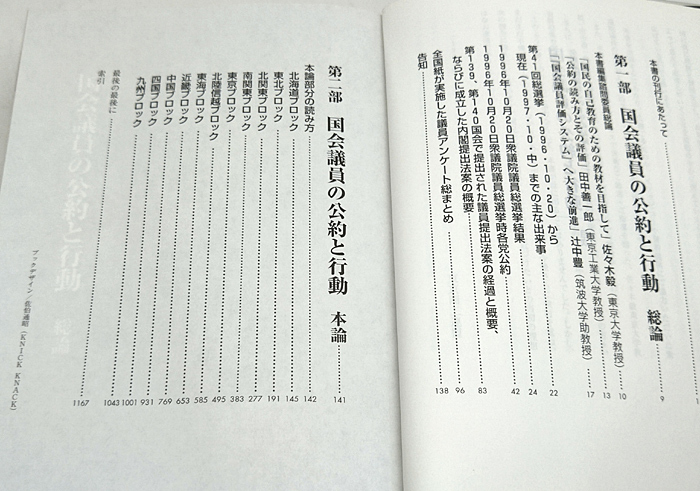 本書の刊行にあたって 1
第一部 国会議員の公約と行動 総論 9
本書編集諮問委員総論
「国民の自己教育のための教材を目指して」佐々木毅（東京大学教授） 10
「公約の読み方とその評価」田中善一郎（東京工業大学教授） 13
「「国会議員評価システム」へ大きな前進」辻中豊（筑波大学助教授） 17
第41回総選挙（1996・10・20）から
現在（1997・10・中）までの主な出来事 22
1996年10月20日衆議院議員総選挙結果 24
1996年10月20日衆議院議員総選挙時各党公約 42
第139、第140国会で提出された議員提出法案の経過と概要、
ならびに成立した内閣提出法案の概要 83
全国紙が実施した議員アンケート総まとめ 96
告知 138
第二部 国会議員の公約と行動 本論 141
本論部分の読み方 142
北海道ブロック 145
東北ブロック 191
北関東ブロック 277
南関東ブロック 383
東京ブロック 495
北陸信越ブロック 585
東海ブロック 653
近畿ブロック 769
中国ブロック 931
四国ブロック 1001
九州ブロック 1043
最後の最後に
索引 1167
ブックデザイン／佐伯通昭（KNICK KNACK）